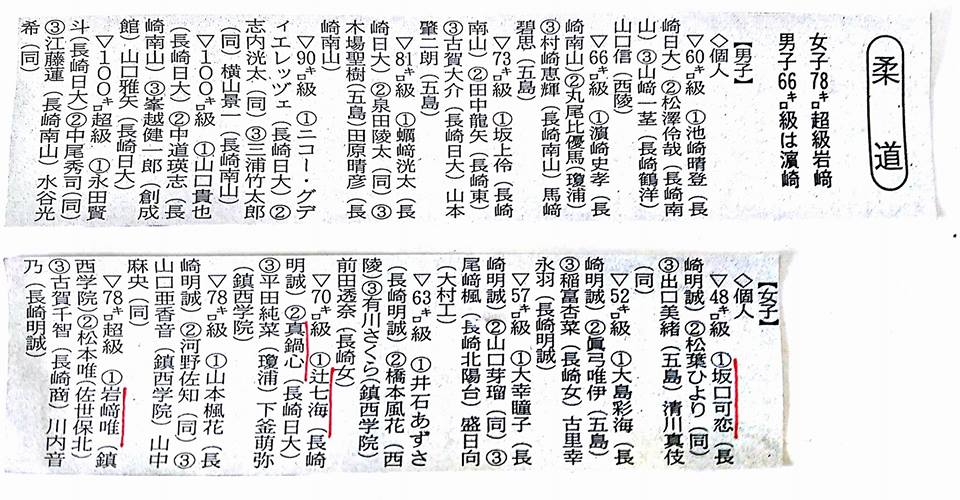 柔道
女子78㌔超級岩﨑
男子66㌔級は濵崎
【男子】
◇個人
▽60㌔級 ①池崎晴登(長
崎日大)②松澤伶哉(長崎南
山)③山﨑一茎(長崎鶴洋)
山口信(西陵)
▽66㌔級 ①濵崎史孝(長
崎南山)②丸尾比優馬(瓊浦)
③村崎恵輝(長崎南山)馬﨑
碧思(五島)
▽73㌔級 ①坂上伶(長崎
南山)②田中龍矢(長崎東)
③古賀大介(長崎日大)山本
肇二朗(五島)
▽81㌔級 ①蠣﨑洸太(長
崎日大)②泉田陵太(同)③
木場聖樹(五島)田原晴彦(長
崎南山)
▽90㌔級 ①ニコー・グデ
ィエレッヅェ(長崎日大)②
志内洸太(同)③三浦竹太郎
(同)横山景一(長崎南山)
▽100㌔級 ①山口貴也
(長崎日大)②中道瑛志(長
崎南山)③峯越健一郎(創成
館)山口雅矢(長崎日大)
▽100㌔超級 ①永田賢
斗(長崎日大)②中尾秀司(同)
③江藤蓮(長崎南山)水谷光
希(同)
【女子】
◇個人
▽48㌔級 ①坂口可恋(長
崎明誠)②松葉ひより(同)
③出口美緒(五島)清川真伎
(同)
▽52㌔級 ①大島彩海(長
崎明誠)②眞弓唯伊(五島)
③稲富杏菜(長崎女)古里幸
永羽(長崎明誠)
▽57㌔級 ①大幸瞳子(長
崎明誠)②山口芽瑠(同)③
尾崎楓(長崎北陽台)盛日向
(大村工)
▽63㌔級 ①井石あずさ
(長崎明誠)②橋本風花(西
陵)③有川さくら(鎮西学院)
前田透奈(長崎女)
▽70㌔級 ①辻七海(長崎
明誠)②真鍋心(長崎日大)
③平田純菜(瓊浦)下釜萌弥
(鎮西学院)
▽78㌔級 ①山本楓花(長
崎明誠)②河野佐知(同)③
山口亜香音(鎮西学院)山中
麻央(同)
▽78㌔超級 ①岩﨑唯(鎮
西学院)②松本唯(佐世保北)
③古賀千智(長崎商)川内音
乃(長崎明誠)